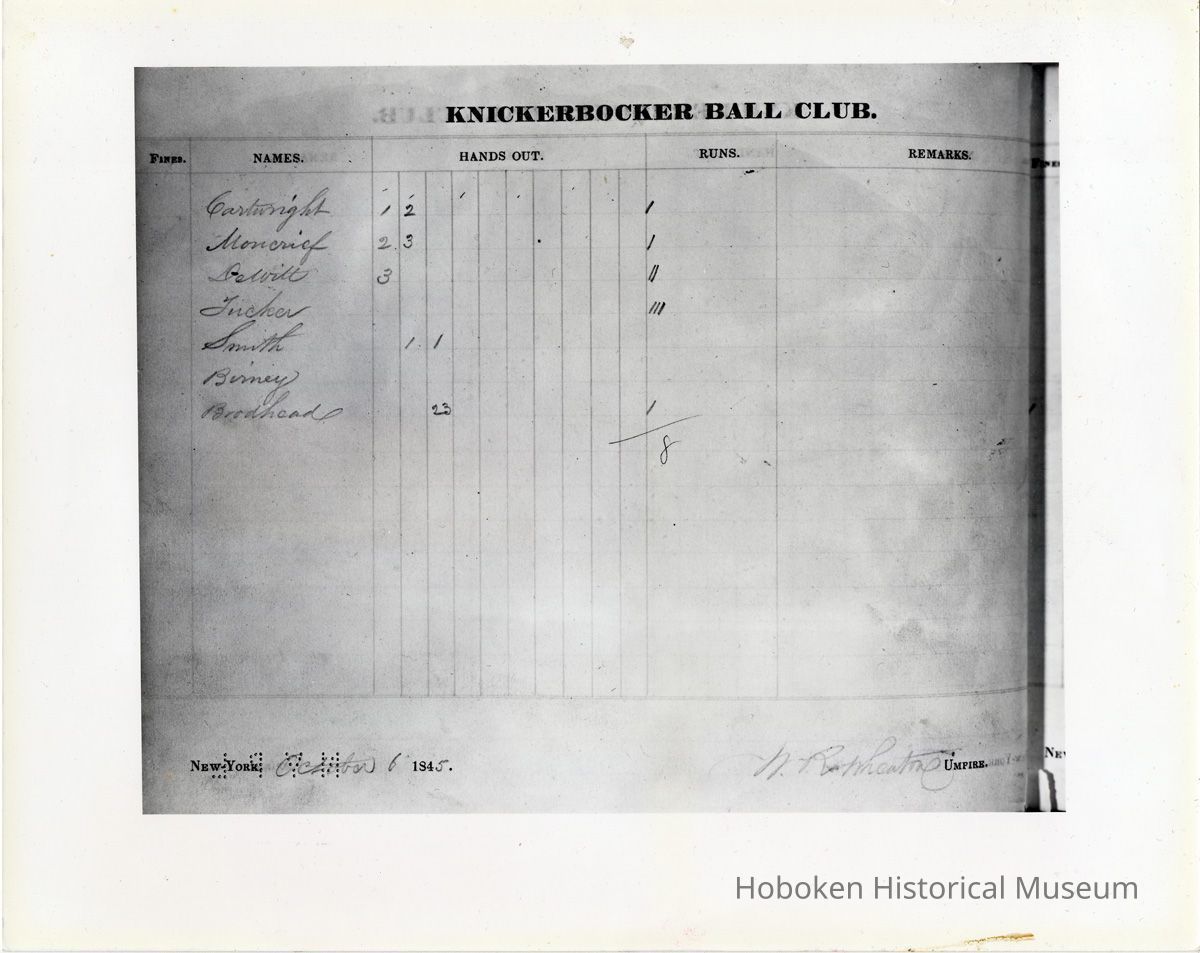 KNICKERBOCKER BALL CLUB.
FINES. NAMES. HANDS OUT. RUNS. REMARKS.
Cartwright 1 2 I
Moncrief 2 3 I
DeWitt 3 II
Tucker III
Smith 1 1
Birney
Brodhead 2 3 I
8
NEW-YORK, October 6 1845. W. R. Wheaton UMPIRE.
Hoboken Historical Museum